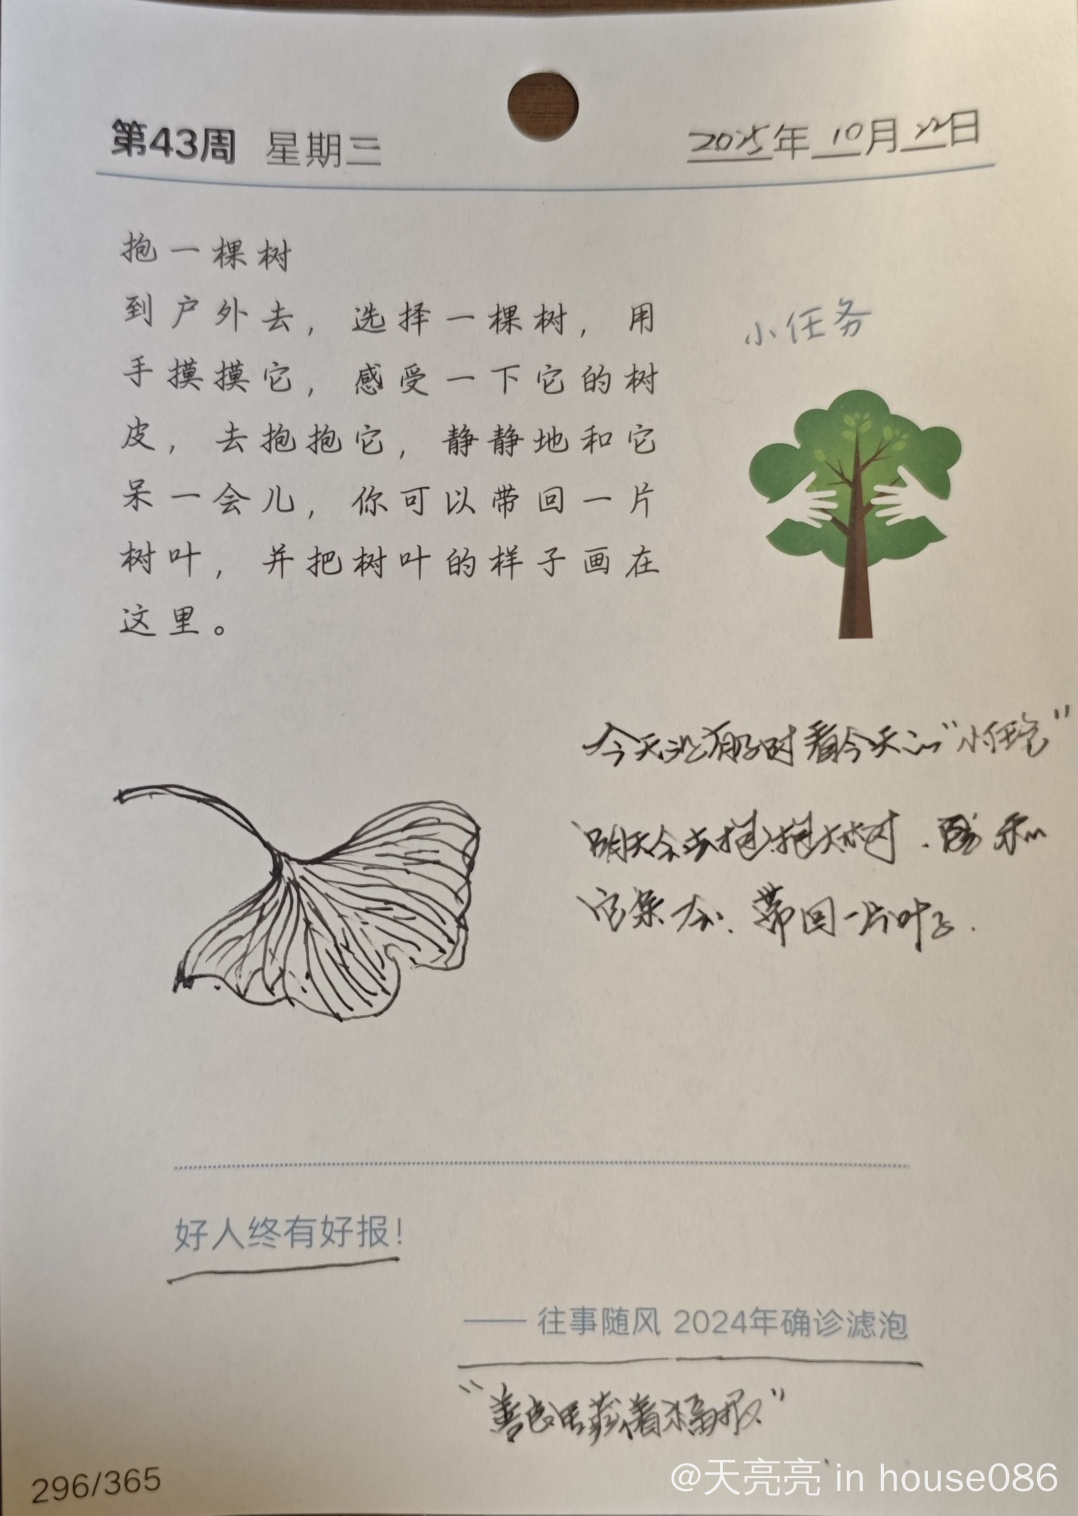 第43周 星期三
2025年10月22日
抱一棵树
到户外去，选择一棵树，用
手摸摸它，感受一下它的树
皮，去抱抱它，静静地和它
呆一会儿，你可以带回一片
树叶，并把树叶的样子画在
这里。
小任务
今天没有及时看今天的“小任务”
明天会去抱抱大树. 和
它呆一会. 带回一片叶子.
好人终有好报！
—— 往事随风 2024年确诊滤泡
“善良里藏着福报”
296/365
@天亮亮 in house086